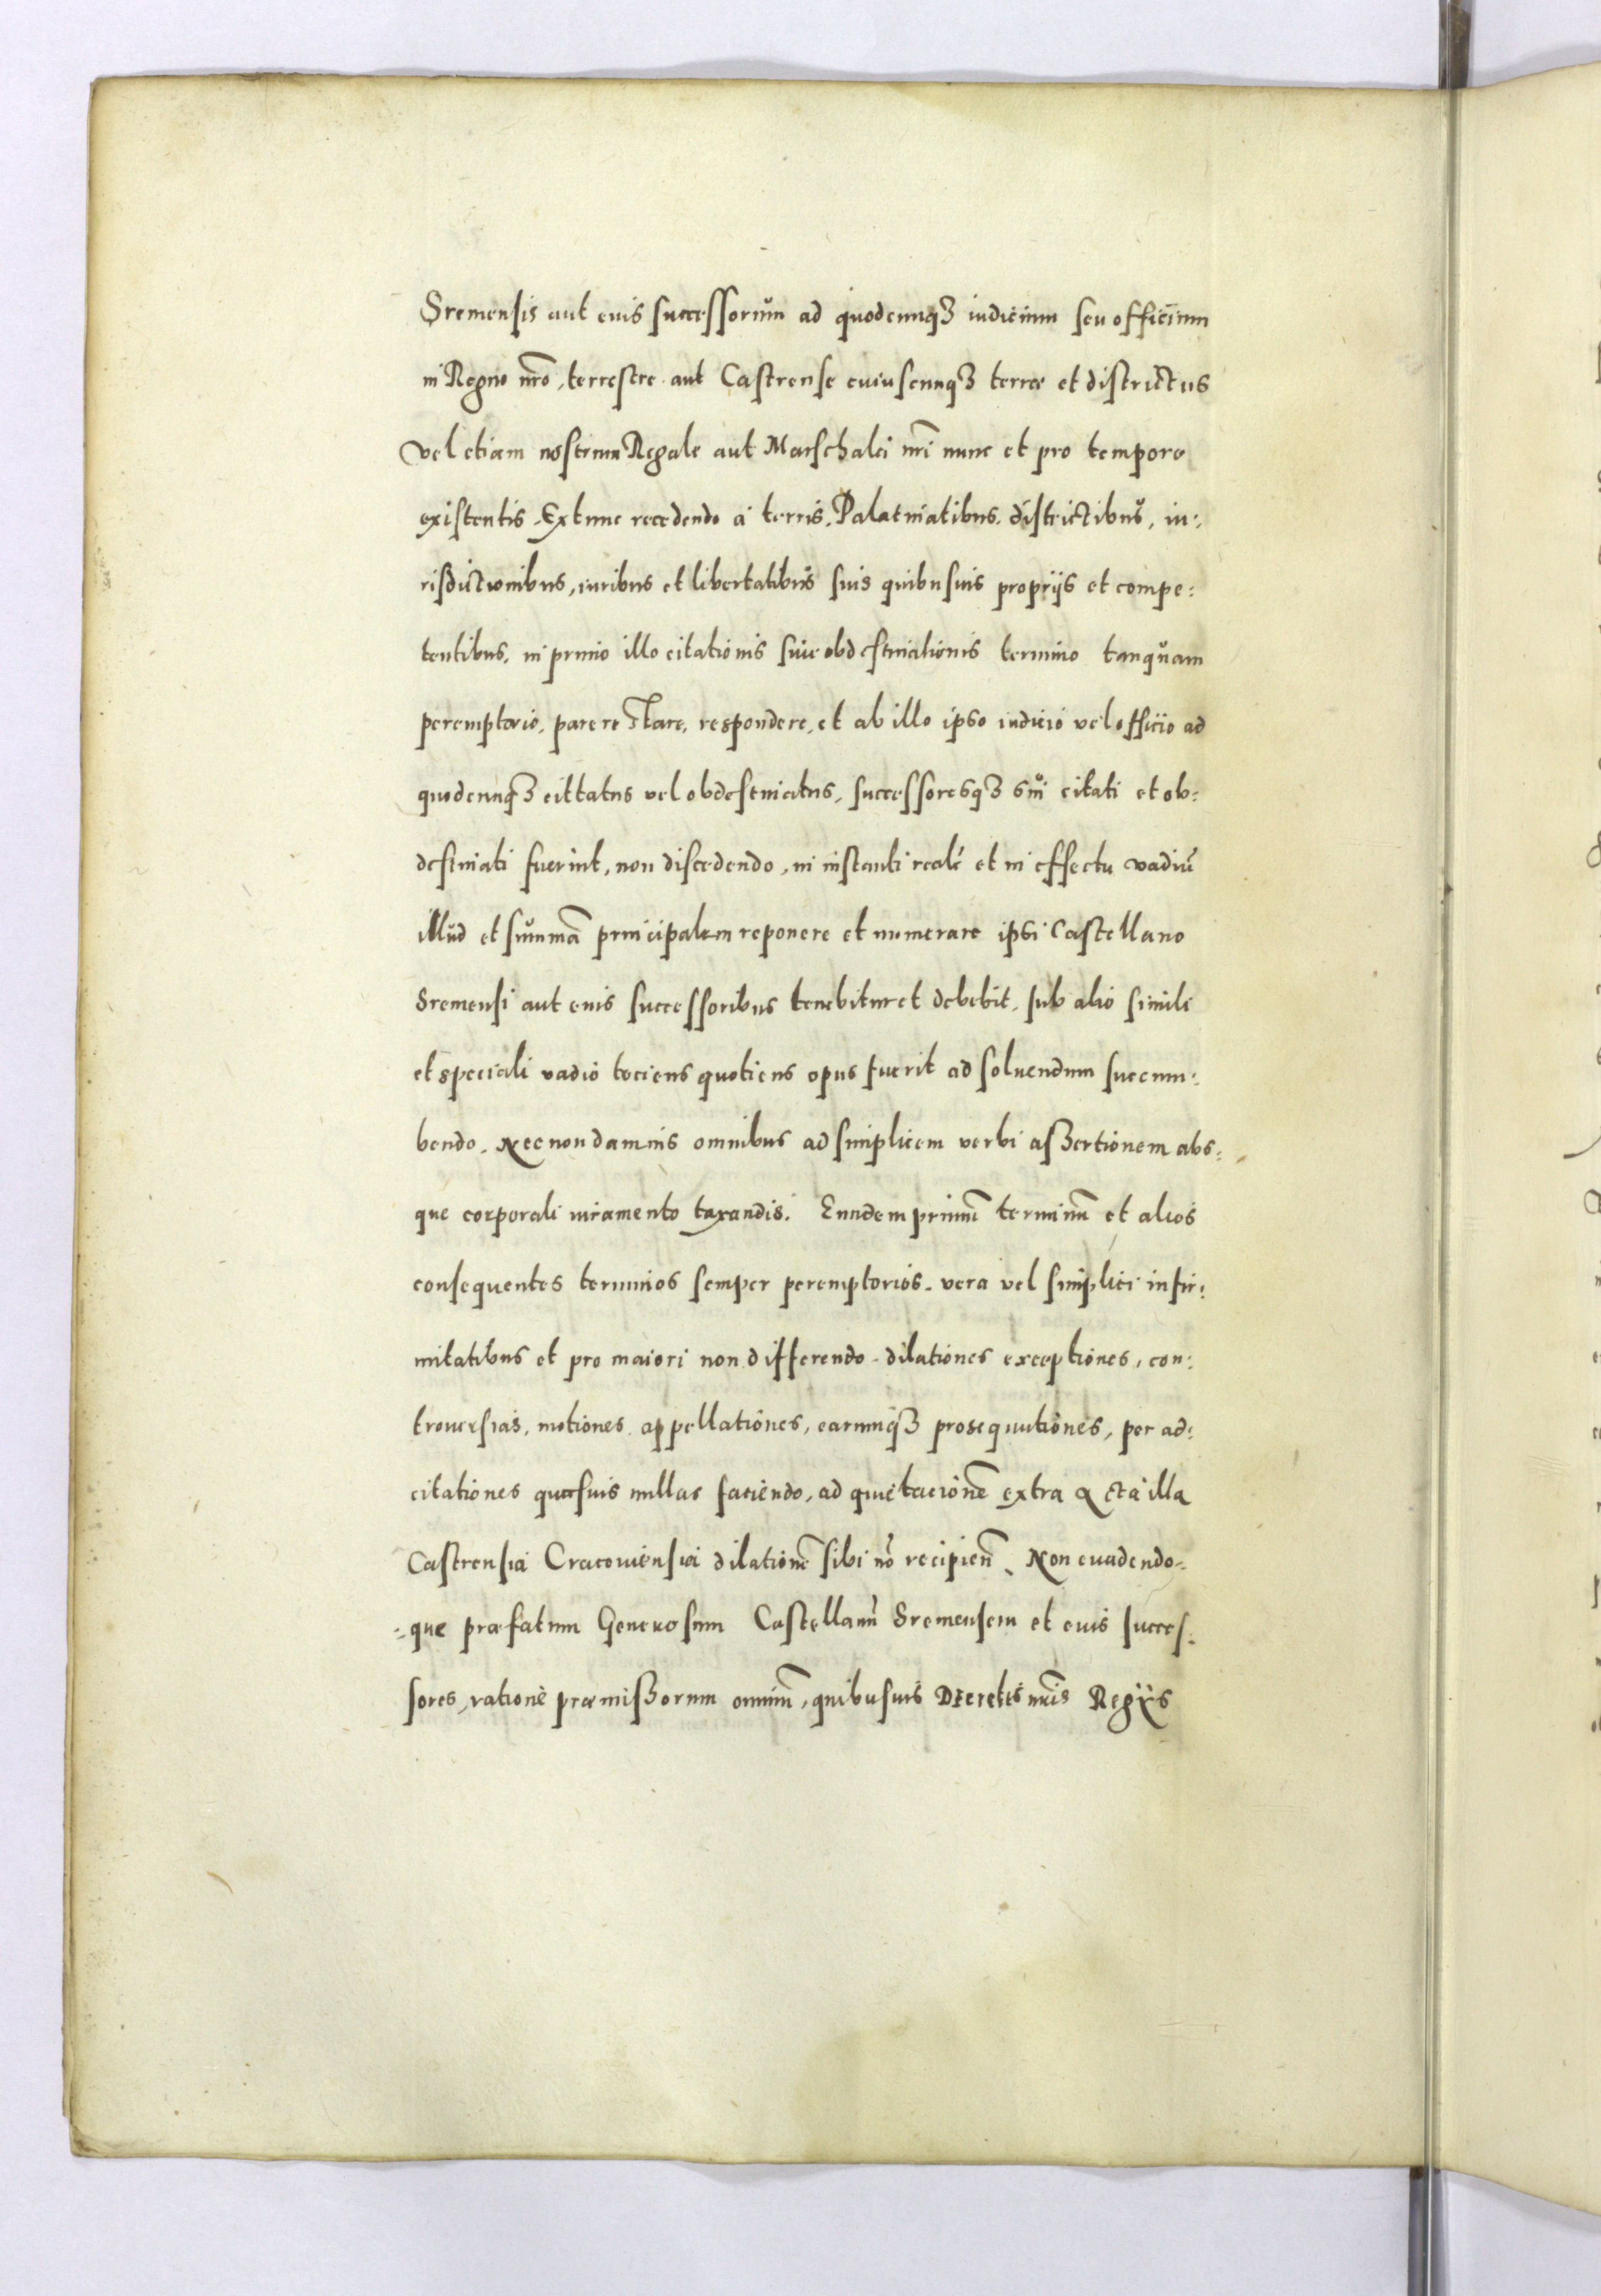 Sremensis aut eius successorum ad quodcunqꝫ iudicium seu officium
in Regno nr̃o, terrestre aut Castrense cuiuscunqꝫ terræ et districtus
vel etiam nostrum Regale aut Marschalci nr̃i nunc et pro tempore
existentis. Extunc recedendo à terris, Palatinatibus, districtibus, iu:
risdictionibus, iuribus et libertatibus suis quibusuis proprijs et compe:
tentibus, in primo illo citationis siue obdestinationis termino tanquam
peremptorio, parere stare, respondere, et ab illo ipso iudicio vel officio ad
quodcunqꝫ cittatus vel obdestinatus, successoresqꝫ sui citati et ob:
destinati fuerint, non discedendo, in instanti realẽ et in effectu vadiũ
illud et summã principalem reponere et numerare ipsi Castellano
Sremensi aut eius successoribus tenebitur et debebit, sub alio simili
et speciali vadio tociens quotiens opus fuerit ad soluendum succum:
bendo. Nec non damnis omnibus ad simplicem verbi aßertionem abs:
que corporali iuramento taxandis. Eundem primũ terminũ et alios
consequentes terminos semper peremptorios, vera vel simplici infir:
mitatibus et pro maiori non differendo, dilationes exceptiones, con:
trouersias, motiones, appellationes, earumqꝫ prosequutiones, per ad:
citationes quasuis nullas faciendo, ad quietacionẽ extra acta illa
Castrensia Cracouiensia dilationẽ sibi nõ recipieñ. Non euadendo:
:que præfatum Generosum Castellanũ Sremensem et eius succes:
sores, ratione præmißorum omniũ, quibusuis Decretis nr̃is Regijs